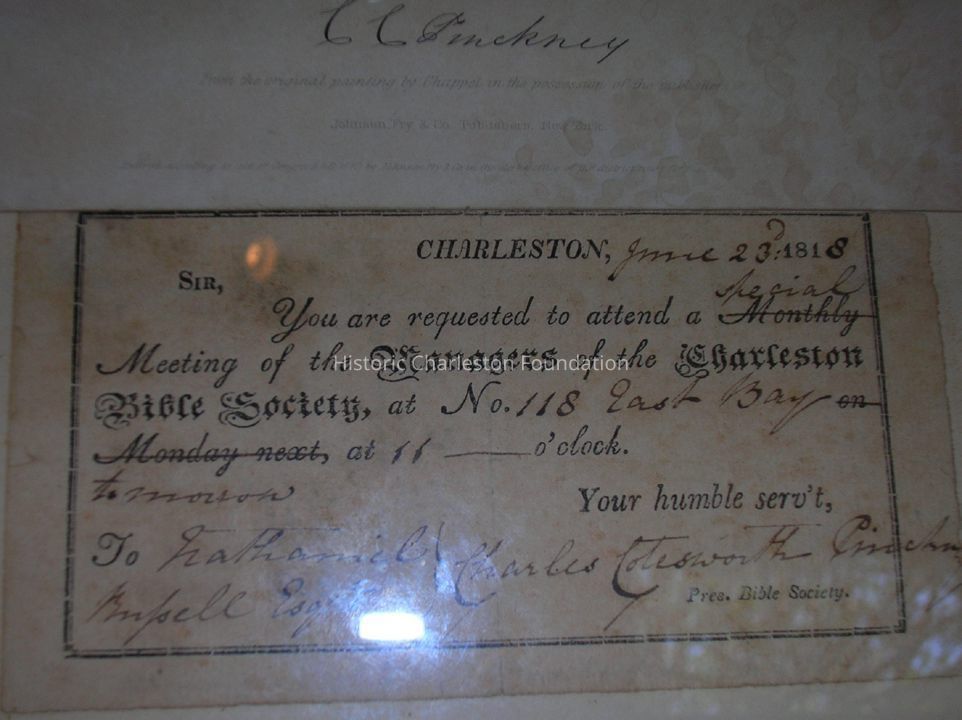 C C Pinckney
From the original painting by Chappel in the possession of the publisher
Johnson, Fry & Co. Publishers, New York
CHARLESTON, June 23d. 1818
SIR,
special
You are requested to attend a Monthly
Meeting of the Managers of the Charleston
Bible Society, at No. 118 East Bay on
Monday next, at 11 o'clock.
to morrow
Your humble serv't,
To Nathaniel Charles Cotesworth Pinckn
Russell Esqr
Pres. Bible Society.
Historic Charleston Foundation